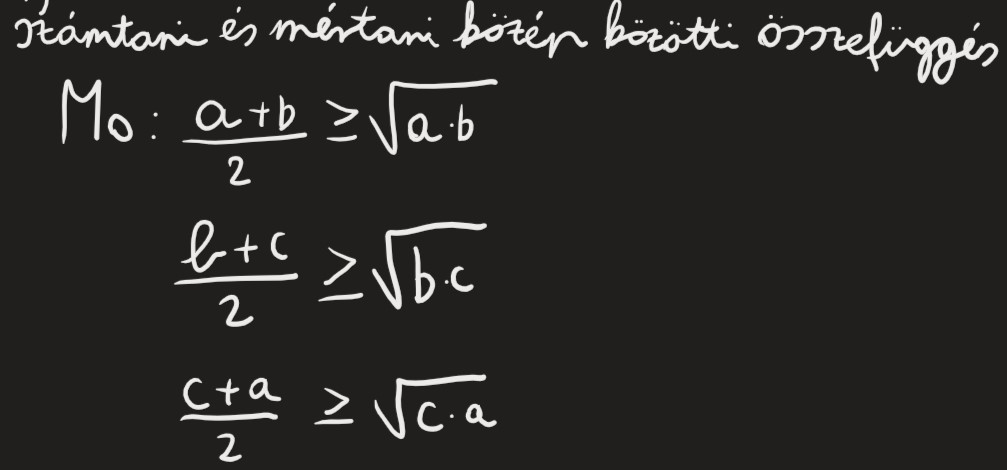 számtani és mértani közép közötti összefüggés
Mo: (a+b)/2 ≥ √(a·b)
(b+c)/2 ≥ √(b·c)
(c+a)/2 ≥ √(c·a)